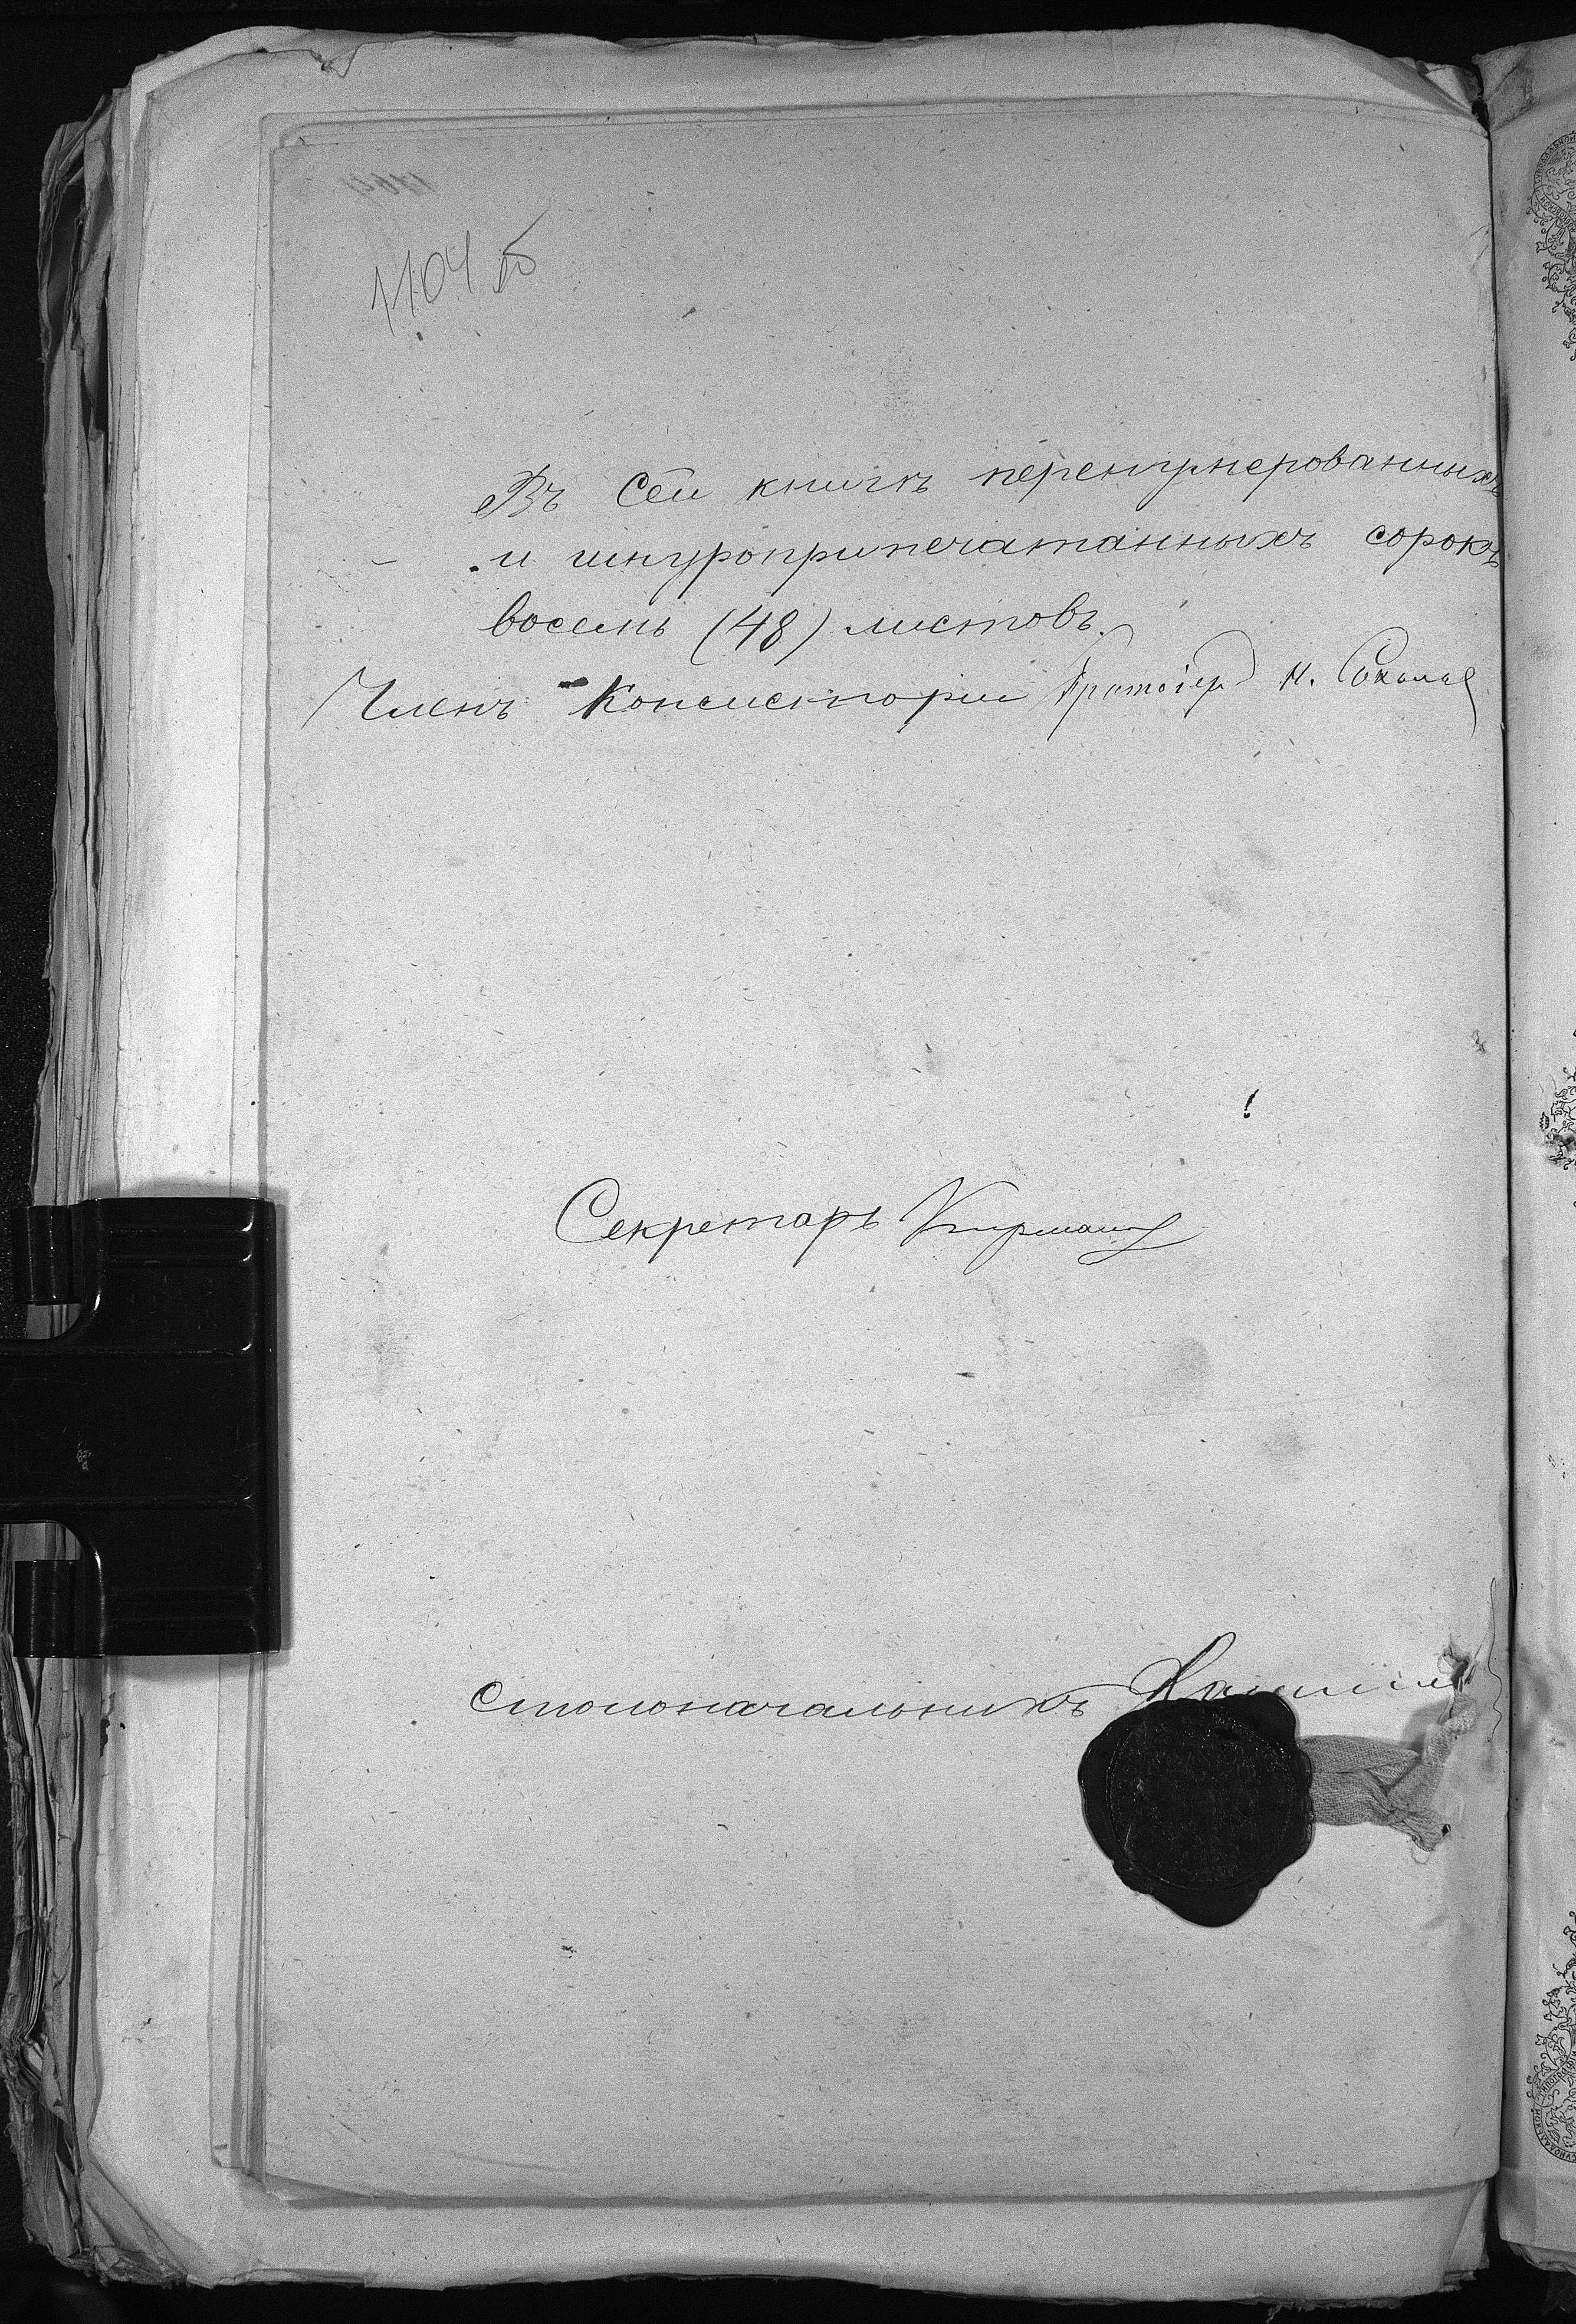 1104 об
Въ сей книгѣ перенумерованныхъ
и шнуроприпечатанныхъ сорокъ
восемь (48) листовъ.
Членъ Консисторіи Протоіер. Н. Соколов
Секретарь
Столоначальникъ